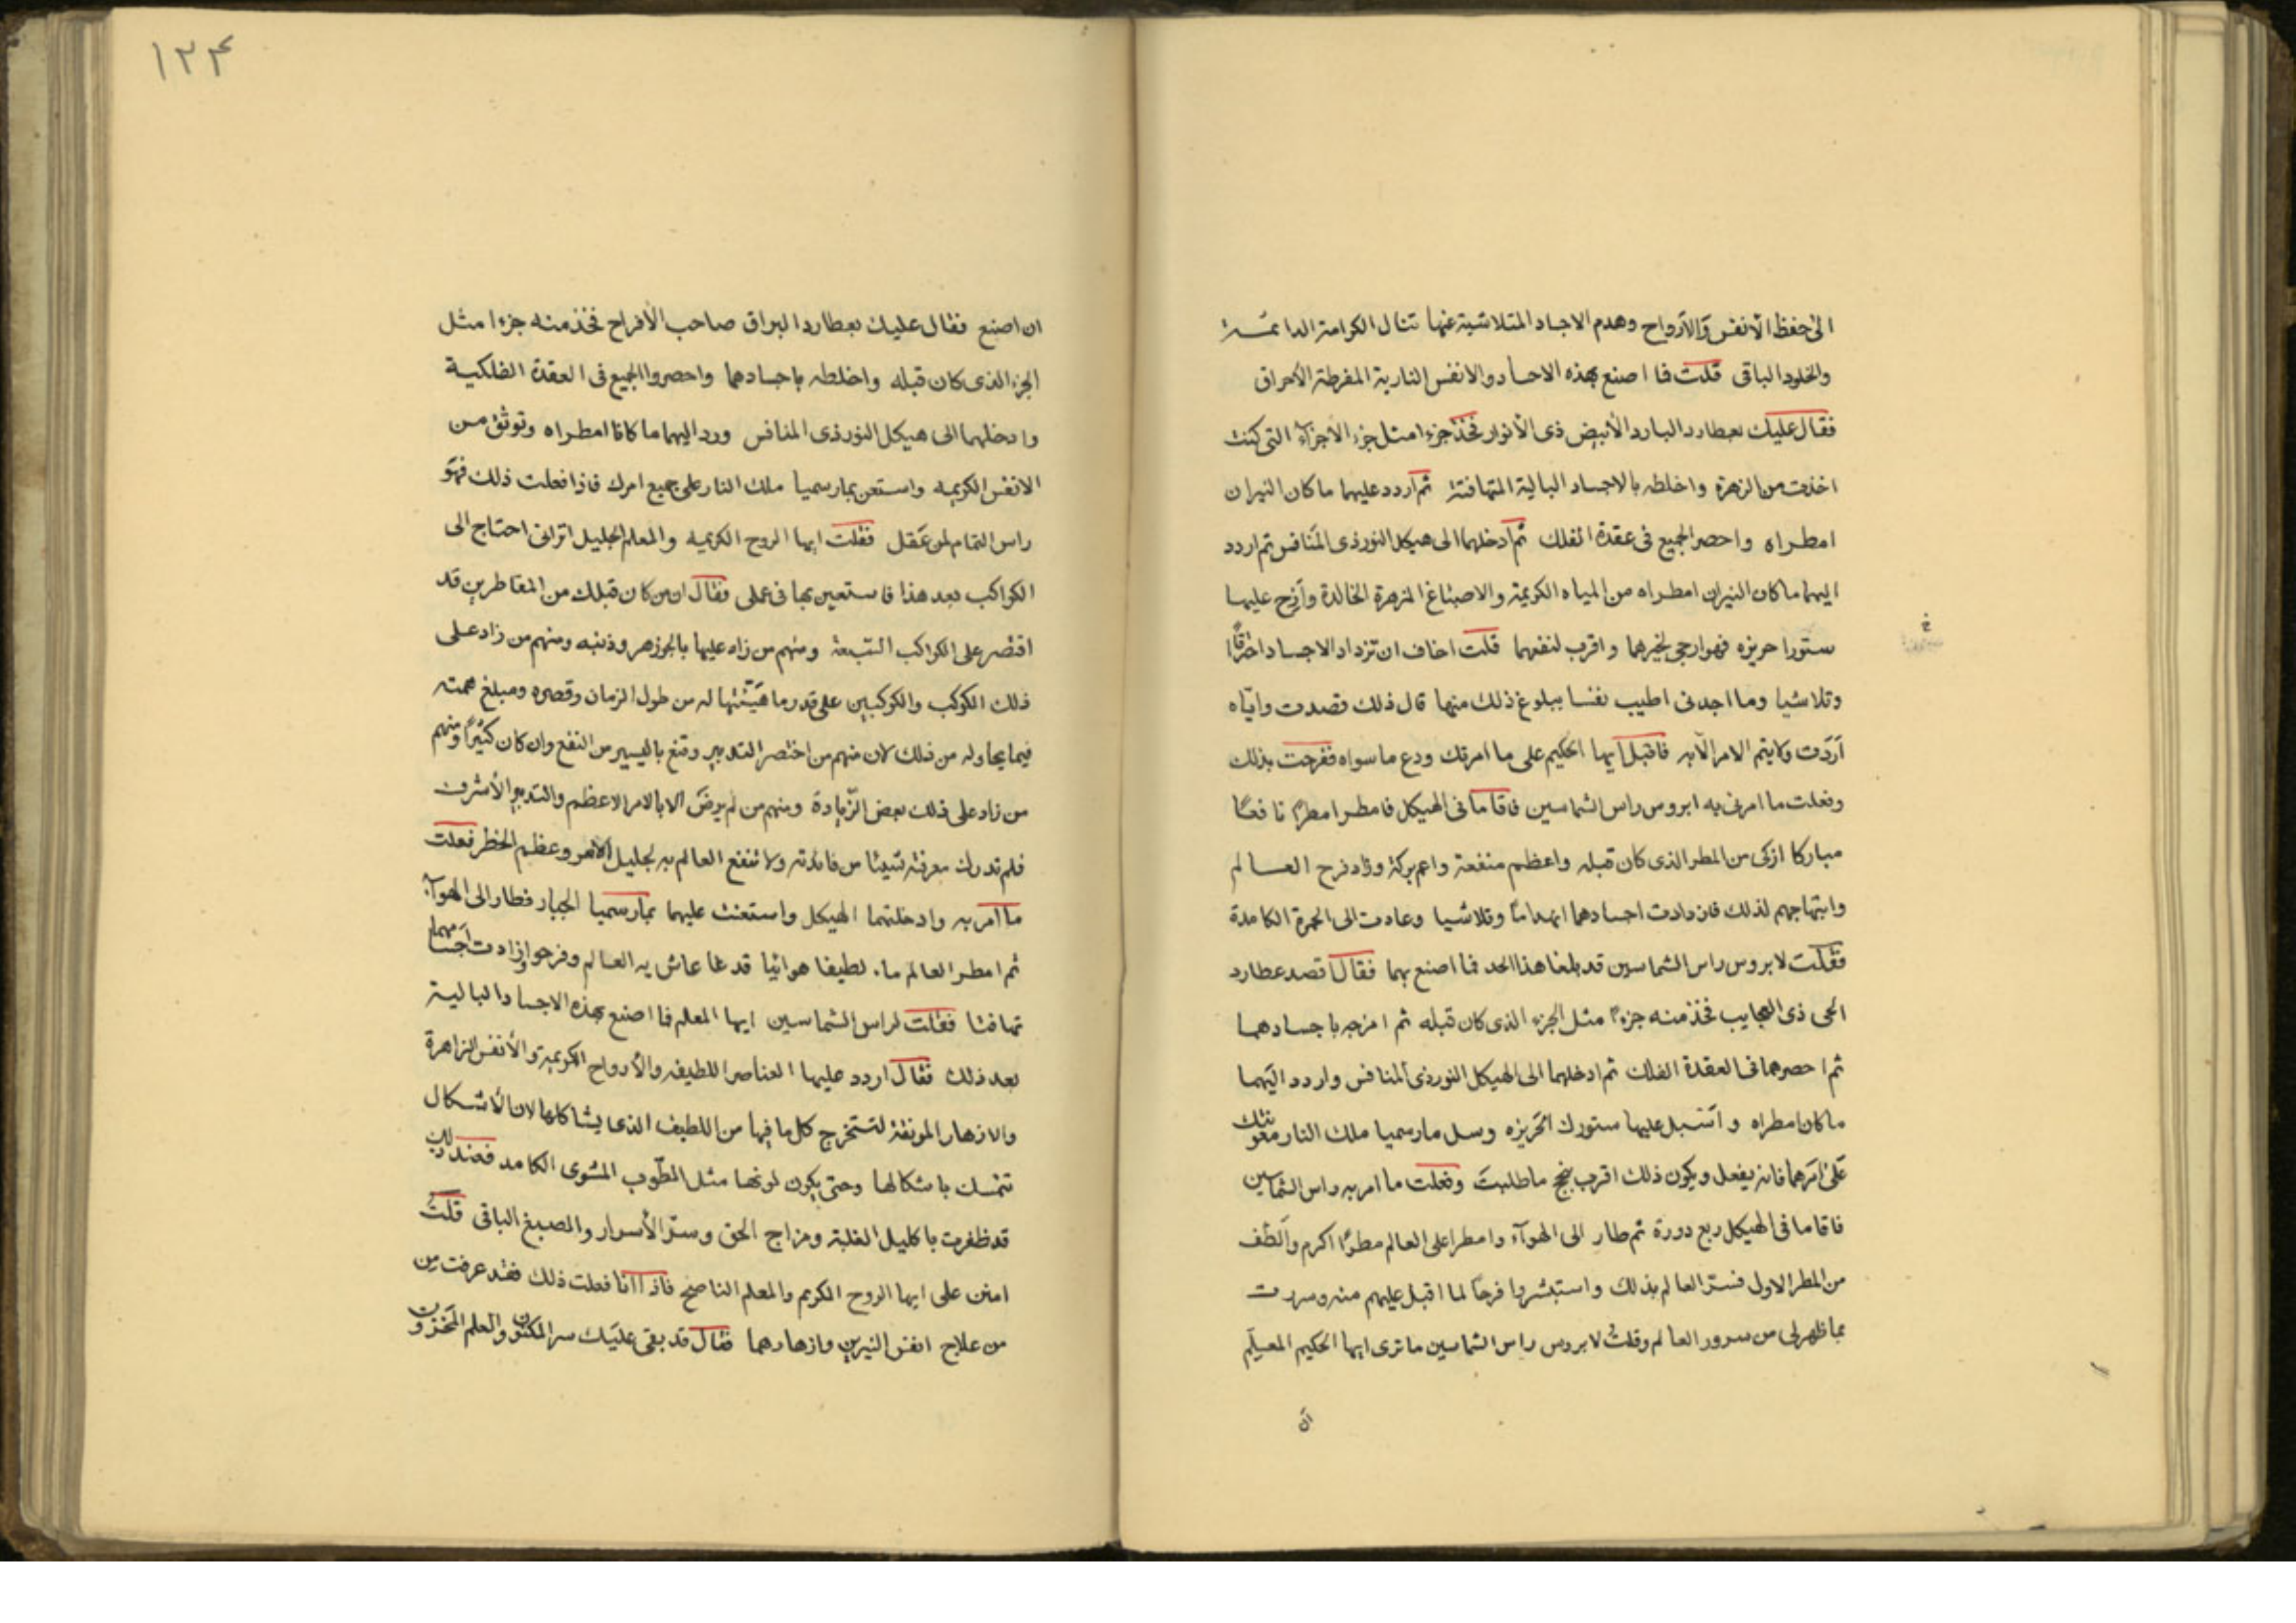 الى حفظ الأنفس والأرواح وهدم الاجساد المتلاشية عنها تنال الكرامة الدائمة
والخلود الباقى قلت فما اصنع بهذه الاجساد والانفس النارية المفرطة الأحراق
فقال عليك بعطارد البارد الأبيض ذى الأنوار فخذ جزءا مثل جزء الأجزآء التى كنت
اخذت من الزهرة واخلطه بالاجساد البالية المتهافتة ثم اردد عليهما ما كان النيران
امطراه واحصر الجميع فى عقدة الفلك ثم ادخلهما الى هيكل النور ذى المنافس ثم اردد
اليهما ما كان النيران امطراه من المياه الكريمة والاصباغ المزهرة الخالدة وأرخ عليهما
ستورا حريزه فهو ارجى لخيرهما واقرب لنفعهما قلت اخاف ان تزداد الاجساد احتراقًا
وتلاشيا وما اجدنى اطيب نفسا ببلوغ ذلك منها قال ذلك قصدت واياه
أردت ولا يتم الامر الا به فاقبل ايها الحكيم على ما امرتك ودع ما سواه ففرحت بذلك
وفعلت ما امرنى به ابروس راس الشماسين فاقاما فى الهيكل فامطرا مطرًا نافعًا
مباركا ازكى من المطر الذى كان قبله واعظم منفعة واعم بركة وزاد فرح العالم
وابتهاجهم لذلك فازدادت اجسادهما انهدامًا وتلاشيا وعادت الى الحمرة الكامدة
فقلت لابروس راس الشماسين قد بلغنا هذا الحد فما اصنع بهما فقال اقصد عطارد
الحى ذى العجايب فخذ منه جزءً مثل الجزء الذى كان قبله ثم امزجه باجسادهما
ثم احصرهما فى العقدة الفلك ثم ادخلهما الى الهيكل النور ذى المنافس واردد اليهما
ما كان امطراه وأسبل عليهما ستورك الحريزه وسل مارسميا ملك النار معونتك
على امرهما فانه يفعل ويكون ذلك اقرب بنجح ما طلبت وفعلت ما امر به راس الشماسين
فاقاما فى الهيكل ربع دورة ثم طار الى الهوآء وامطرا على العالم مطرًا اكرم وألطف
من المطر الاول فسر العالم بذلك واستبشروا فرحًا لما اقبل عليهم منه وسررت
بما ظهر لى من سرور العالم وقلت لابروس راس الشماسين ما ترى ايها الحكيم المعلم
ان
١٢٤
ان اصنع فقال عليك بعطارد البراق صاحب الأفراح فخذ منه جزءا مثل
الجزء الذى كان قبله واخلطه باجسادهما واحصروا الجميع فى العقدة الفلكية
وادخلهما الى هيكل النور ذى المنافس ورد اليهما ما كانا امطراه وتوثق من
الانفس الكريمه واستعن بمارسميا ملك النار على جميع امرك فاذا فعلت ذلك فهو
راس التمام لمن عقل فقلت ايها الروح الكريمه والمعلم الجليل اترانى احتاج الى
الكواكب بعد هذا فاستعين بها فى عملى فقال ان من كان قبلك من المقاطرين قد
اقتصر على الكواكب السبعة ومنهم من زاد عليها بالجوزهر وذنبه ومنهم من زاد على
ذلك الكوكب والكوكبين على قدر ما هيئتها له من طول الزمان وقصره ومبلغ همته
فيما يحاوله من ذلك لان منهم من اختصر التدبير وقنع باليسير من النفع وان كان كثيرًا ومنهم
من زاد على ذلك بعض الزيادة ومنهم من لم يرض الا بالامر الاعظم والتدبير الأشرف
فلم تدرك معرفة شيئا من فائدته ولا تنفع العالم به لجليل الأمر وعظم الخطر فعلت
ما امر به وادخلتهما الهيكل واستعنت عليهما بمارسميا الجبار فطار الى الهوآء
ثم امطر العالم ماء لطيفا هوائيا قد غا عاش به العالم وفرحوا وزادت اجسامهما
تهافتا فقلت لراس الشماسين ايها المعلم فما اصنع بهذه الاجساد البالية
بعد ذلك فقال اردد عليهما العناصر اللطيفه والأرواح الكريمة والأنفس الزاهرة
والازهار المونقة لتستخرج كل ما فيها من اللطيف الذى يشاكلها لان الأشكال
تتمسك باشكالها وحتى يكون لونها مثل الطوب المشوى الكامد فعند ذلك
قد ظفرت باكليل الغلبة ومزاج الحق وسر الأسرار والصبغ الباقى قلت
امنن على ايها الروح الكريم والمعلم الناصح فاذا انا فعلت ذلك فقد عرفت من
من علاج انفس النيرين وازهارهما فقال قد بقى عليك سر المكنون والعلم المخزون